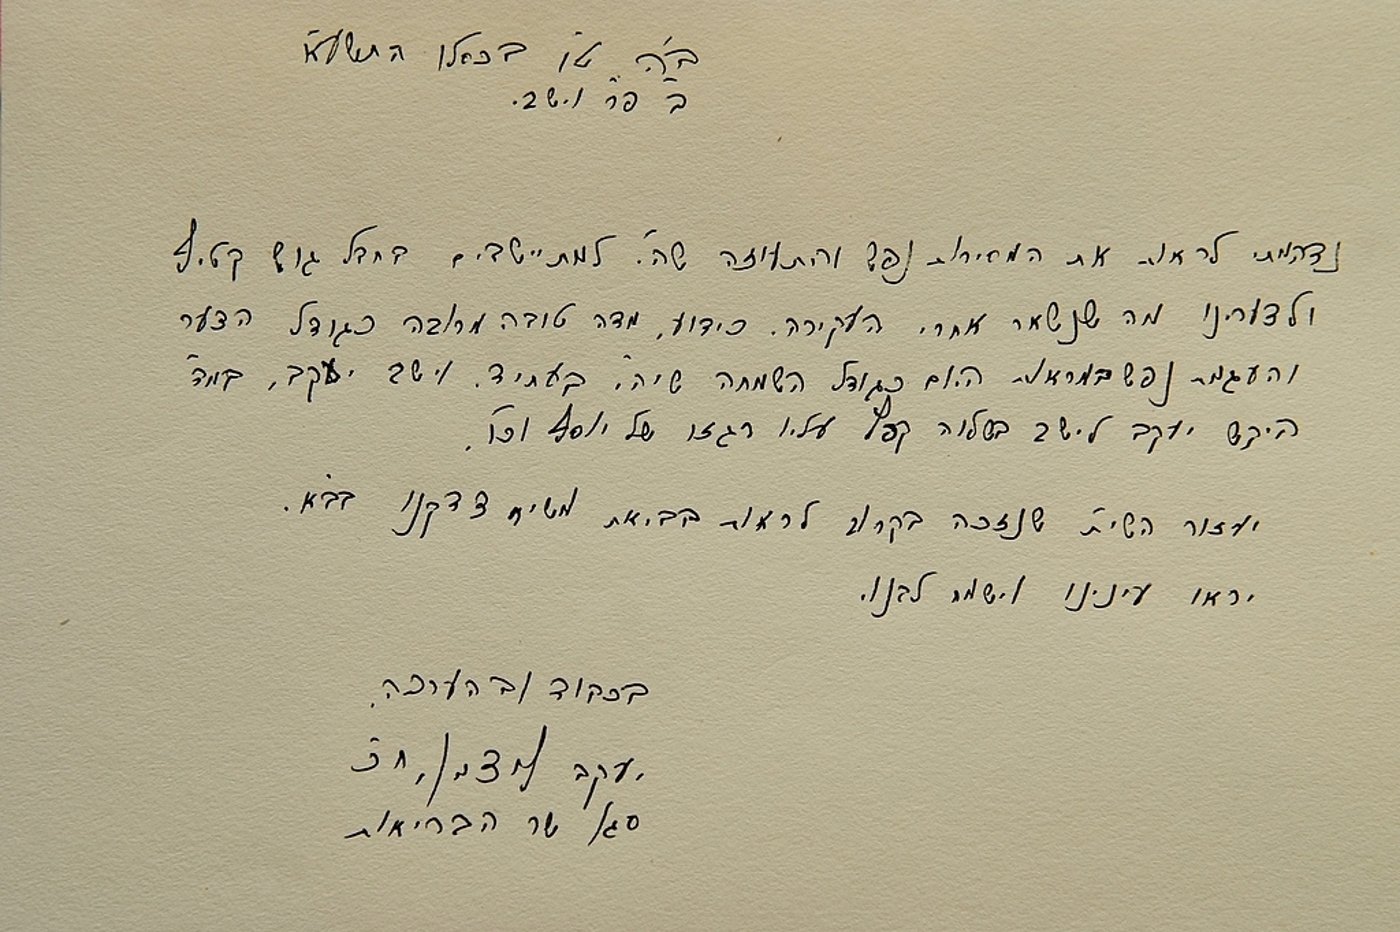 ב"ה ט"ו בכסלו התשע"א
ב' פר' וישב.
נדהמתי לראות את המסירות נפש והתעוזה שהי' למתיישבים בחבל גוש קטיף
ולצערינו מה שנשאר אחרי העקירה. כידוע, מדה טובה מרובה כגודל הצער
והעגמת נפש במראות היום כגודל השמחה שיהי' בעתיד. וישב יעקב, במד"
ביקש יעקב לישב בשלוה קפץ עליו רגזו של יוסף וכו'.
יעזור השי"ת שנזכה בקרוב לראות בביאת משיח צדקנו בב"א.
יראו עינינו וישמח לבנו.
בכבוד ובהערכה,
יעקב ליצמן, ח"כ
סגן שר הבריאות